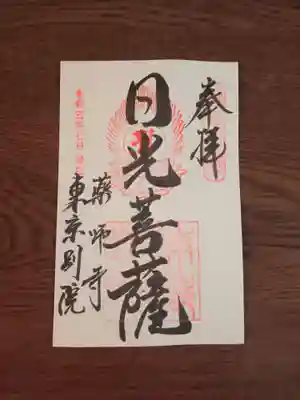 奉拝
日光菩薩
薬師寺
東京別院